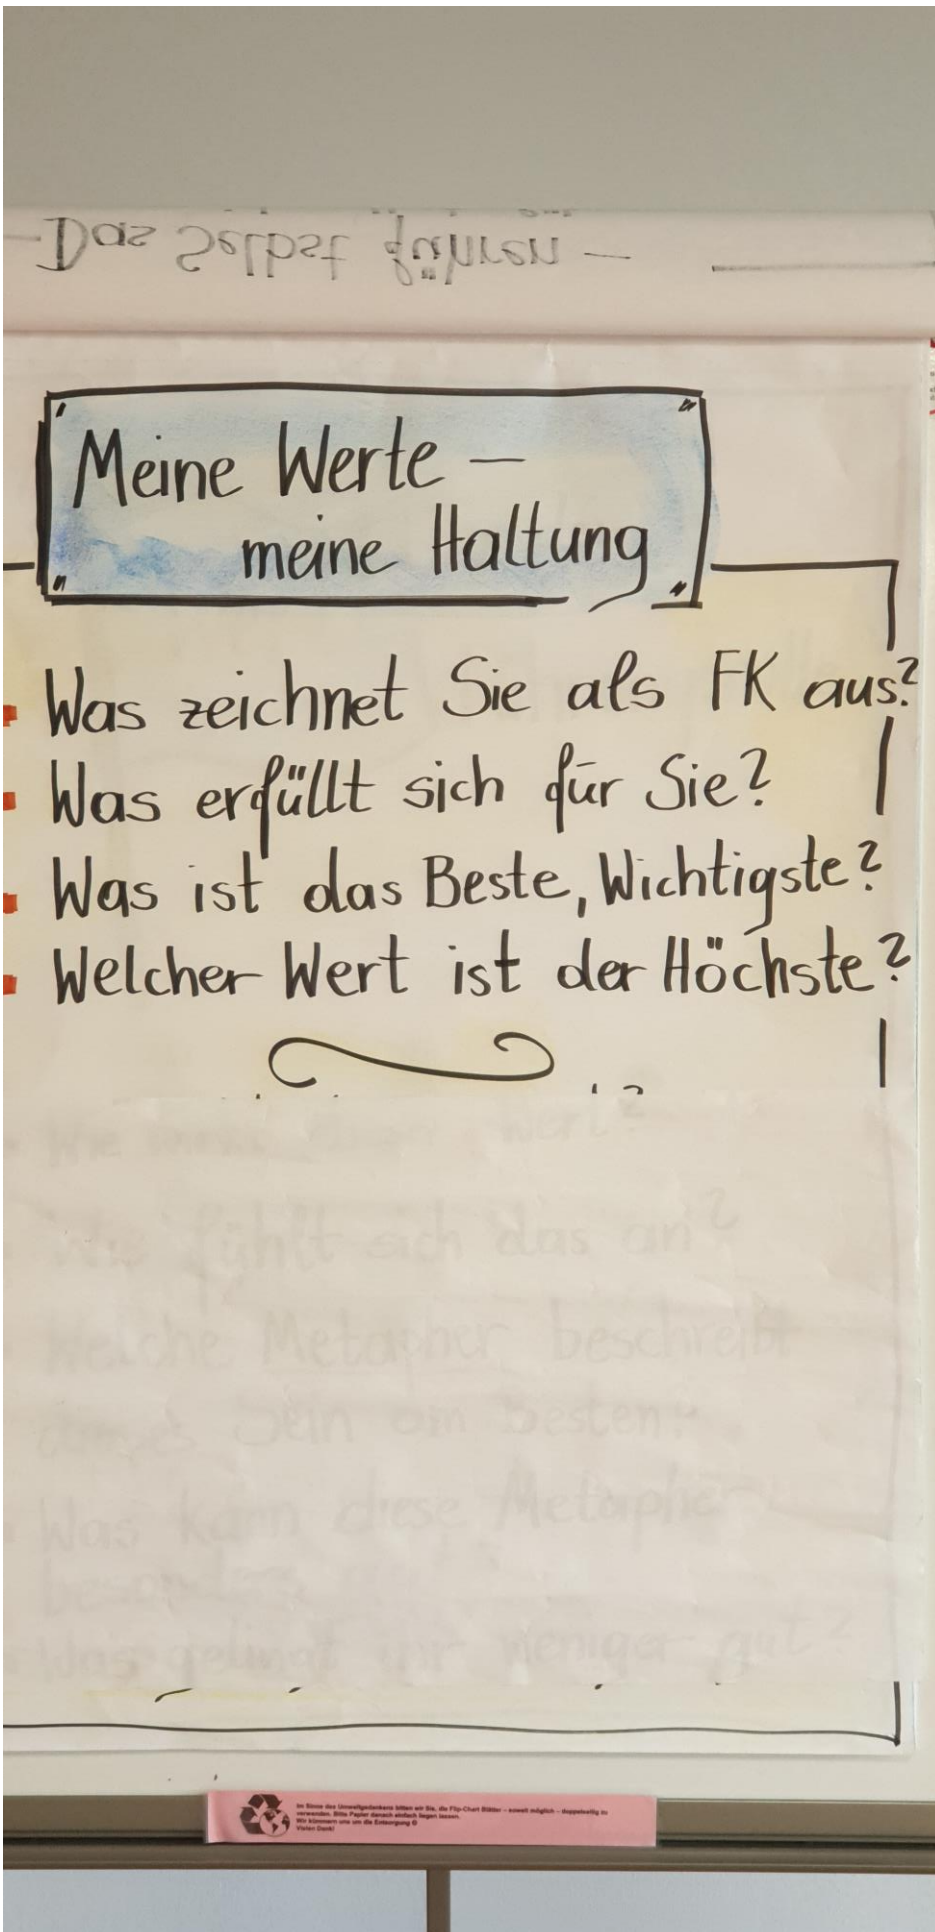 - Das Selbst führen -
Meine Werte -
meine Haltung
Was zeichnet Sie als FK aus?
Was erfüllt sich für Sie?
Was ist das Beste, Wichtigste?
Welcher Wert ist der Höchste?
Wie Wert?
Wie fühlt sich das an?
Welche Metapher beschreibt
dieses Sein am besten?
Was kann diese Metapher
besonders
Was gelingt ihr weniger gut?
Im Sinne des Umweltgedankens bitten wir Sie, die Flip-Chart Blätter - soweit möglich - doppelseitig zu
verwenden. Bitte Papier danach einfach liegen lassen.
Wir kümmern uns um die Entsorgung ☺
Vielen Dank!